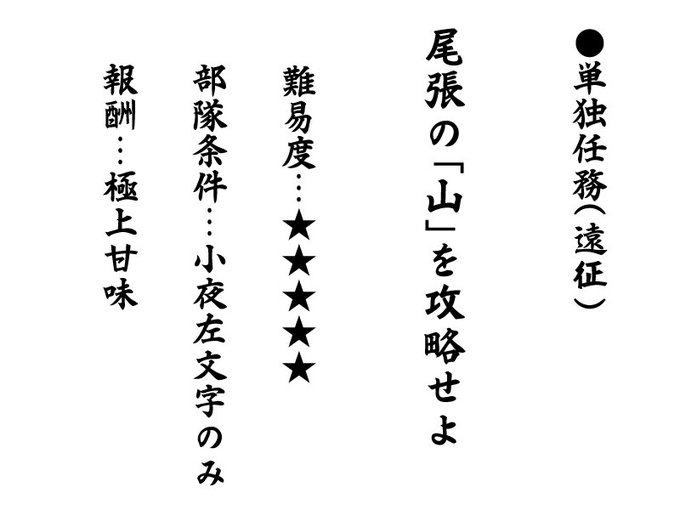 ●単独任務(遠征)
尾張の「山」を攻略せよ
難易度…★★★★★
部隊条件…小夜左文字のみ
報酬…極上甘味